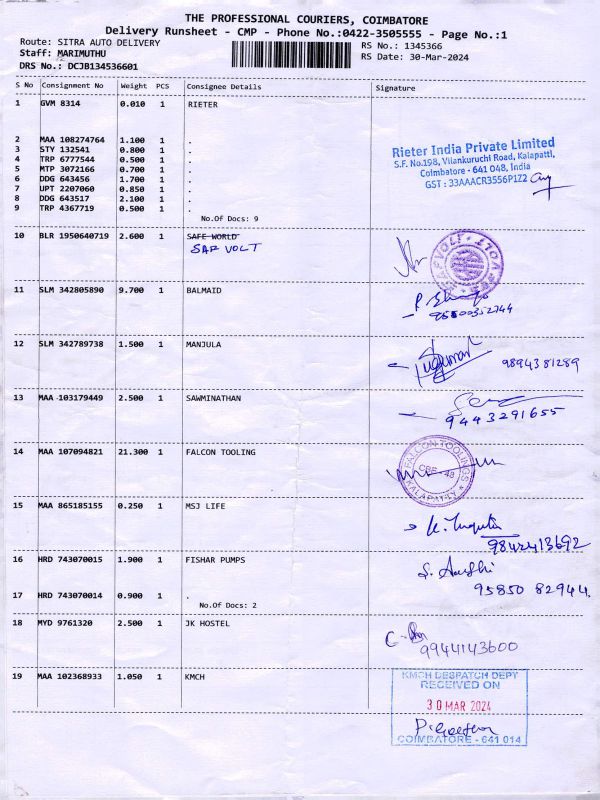 THE PROFESSIONAL COURIERS, COIMBATORE
Delivery Runsheet - CMP - Phone No.:0422-3505555 - Page No.:1
Route: SITRA AUTO DELIVERY
RS No.: 1345366
Staff: MARIMUTHU
RS Date: 30-Mar-2024
DRS No.: DCJB134536601
S No Consignment No Weight PCS Consignee Details Signature
1 GVM 8314 0.010 1 RIETER
2 MAA 108274764 1.100 1 .
3 STY 132541 0.800 1 .
4 TRP 6777544 0.500 1 .
5 MTP 3072166 0.700 1 .
6 DDG 643456 1.700 1 .
7 UPT 2207060 0.850 1 .
8 DDG 643517 2.100 1 .
9 TRP 4367719 0.500 1 .
No.Of Docs: 9
Rieter India Private Limited
S.F. No.198, Vilankuruchi Road, Kalapatti,
Coimbatore - 641 048, India
GST : 33AAACR3556P1Z2
10 BLR 1950640719 2.600 1 SAFE WORLD
SAF VOLT
SAFVOLT
11 SLM 342805890 9.700 1 BALMAID
12 SLM 342789738 1.500 1 MANJULA
9894381289
13 MAA 103179449 2.500 1 SAWMINATHAN
9443291655
14 MAA 107094821 21.300 1 FALCON TOOLING
FALCON TOOLINGS
CBE - 48
KALAPATTY
15 MAA 865185155 0.250 1 MSJ LIFE
9842413692
16 HRD 743070015 1.900 1 FISHAR PUMPS
95850 82944
17 HRD 743070014 0.900 1 .
No.Of Docs: 2
18 MYD 9761320 2.500 1 JK HOSTEL
9944143600
19 MAA 102368933 1.050 1 KMCH
KMCH DESPATCH DEPT
RECEIVED ON
30 MAR 2024
COIMBATORE - 641 014